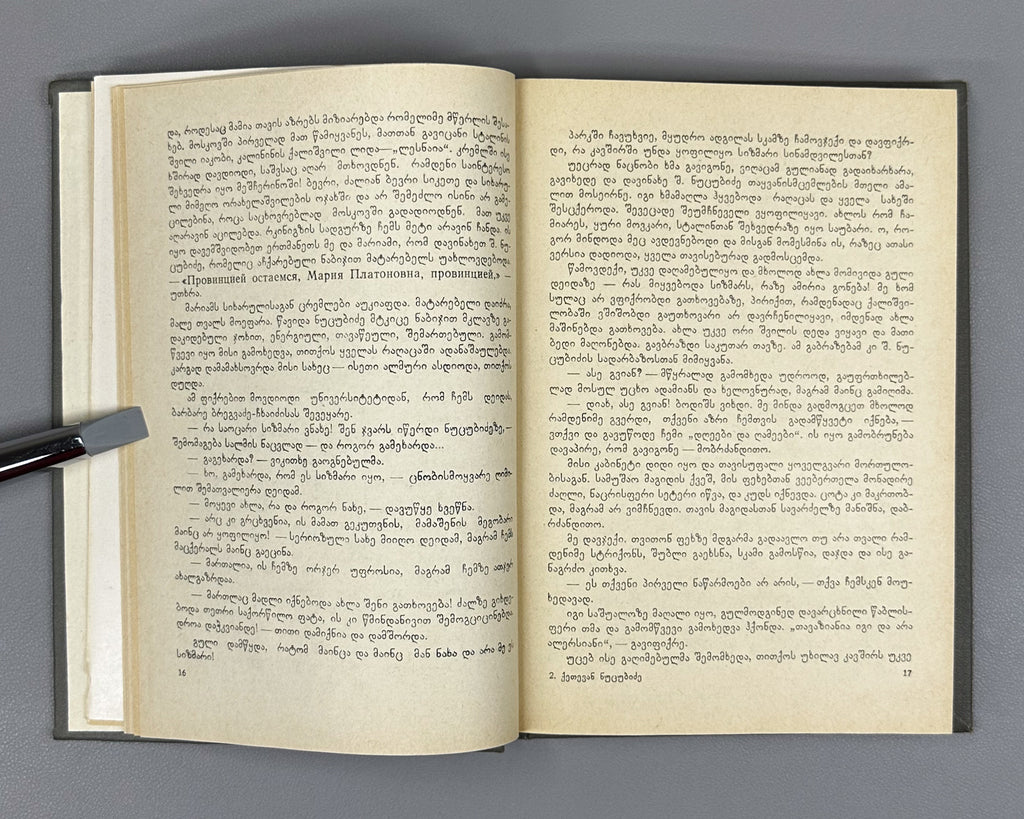 და, როდესაც მამია თავის აზრებს მიზიარებდა რომელიმე მწერლის შესა-
ხებ. მოსკოვში პირველად მათ წამიყვანეს, მათთან გავიცანი სტალინის
შვილი იაკობი, კალინინის ქალიშვილი ლიდა—„ლესნაია“. კრემლში ისე
ხშირად დავდიოდი, საშვსაც აღარ მთხოვდნენ. რამდენი საინტერესო
შეხვედრა იყო მეშჩერინოში! ბევრი, ძალიან ბევრი სიკეთე და სიხარუ-
ლი მიმეღო ორახელაშვილების ოჯახში და არ შემეძლო ისინი არ გამე-
ცილებინა, როცა საცხოვრებლად მოსკოვში გადადიოდნენ. მათ უკვე
აღარავინ აცილებდა. რკინიგზის სადგურზე ჩემს მეტი არავინ ჩანდა. ის
იყო დავემშვიდობეთ ერთმანეთს მე და მარიამი, რომ დავინახეთ შ. ნუ-
ცუბიძე, რომელიც აჩქარებული ნაბიჯით მატარებელს უახლოვდებოდა.
— «Провинцией остаемся, Мария Платоновна, провинцией,» —
უთხრა.
მარიამს სიხარულისაგან ცრემლები აუკიაფდა. მატარებელი დაიძრა,
მალე თვალს მოეფარა. წავიდა ნუცუბიძე მტკიცე ნაბიჯით მკლავზე გა-
დაკიდებული ჯოხით, ენერგიული, თავაწეული, შემართებული. გამომ-
წვევი იყო მისი გამოხედვა, თითქოს ყველას რაღაცაში ადანაშაულებდა.
კარგად დამამახსოვრდა მისი სახეც — ისეთი ალმური ასდიოდა, თითქოს
დუღდა.
ამ ფიქრებით მოვდიოდი უნივერსიტეტიდან, რომ ჩემს დეიდას,
ბარბარე ბრეგვაძე-ჩხაიძისას შევეყარე.
— რა საოცარი სიზმარი ვნახე! შენ ჯვარს იწერდი ნუცუბიძეზე,—
შემომაგება სალმის ნაცვლად — და როგორ გამეხარდა...
— გაგეხარდა? — ვიკითხე გაოგნებულმა.
— ხო, გამეხარდა, რომ ეს სიზმარი იყო, — ცნობისმოყვარე ღიმი-
ლით შემათვალიერა დეიდამ.
— მოყევი ახლა, რა და როგორ ნახე, — დავუწყე ხვეწნა.
— არც კი გრცხვენია, ის მამათ გეკუთვნის, მამაშენის მეგობარი
მაინც არ ყოფილიყო! — სერიოზული სახე მიიღო დეიდამ, მაგრამ ჩემს
მაცქერალს მაინც გაეცინა.
— მართალია, ის ჩემზე ორჯერ უფროსია, მაგრამ ჩემზე ათჯერ
ახალგაზრდაა.
— მართლაც მადლი იქნებოდა ახლა შენი გათხოვება! ძალზე გიხდე-
ბოდა თეთრი საქორწილო ფატა, ის კი წმინდანივით შემოგციცინებდა.
დროა დაჭკვიანდე! — თითი დამიქნია და დამშორდა.
გული დამწყდა, რატომ მაინცა და მაინც მან ნახა და არა მე ეს
სიზმარი!
16
პარკში ჩავუხვიე, მყუდრო ადგილას სკამზე ჩამოვჯექი და დავფიქრ-
დი, რა კავშირში უნდა ყოფილიყო სიზმარი სინამდვილესთან?
უეცრად ნაცნობი ხმა გავიგონე, ვიღაცამ გულიანად გადაიხარხარა,
გავიხედე და დავინახე შ. ნუცუბიძე თაყვანისმცემლების მთელი ამა-
ლით მოსეირნე. იგი ხმამაღლა ჰყვებოდა რაღაცას და ყველა სახეში
შესცქეროდა. შევეცადე შეუმჩნეველი ვყოფილიყავი. ახლოს რომ ჩა-
მიარეს, ყური მოვკარი, სტალინთან შეხვედრაზე იყო საუბარი. ო, რო-
გორ მინდოდა მეც ავდევნებოდი და მისგან მომესმინა ის, რაზეც ათასი
ვერსია დადიოდა, ყველა თავისებურად გადმოსცემდა.
წამოვდექი, უკვე დაღამებულიყო და მხოლოდ ახლა მომივიდა გული
დეიდაზე — რას მიყვებოდა სიზმარს, რაზე ამირია გონება! მე ხომ
სულაც არ ვფიქრობდი გათხოვებაზე, პირიქით, რამდენადაც ქალიშვი-
ლობაში ვშიშობდი გაუთხოვარი არ დავრჩენილიყავი, იმდენად ახლა
მაშინებდა გათხოვება. ახლა უკვე ორი შვილის დედა ვიყავი და მათი
ბედი მაღონებდა. გავბრაზდი საკუთარ თავზე. ამ გაბრაზებამ კი შ. ნუ-
ცუბიძის სადარბაზოსთან მიმიყვანა.
— ასე გვიან? — მწყრალად გამომხედა უდროოდ, გაუფრთხილებ-
ლად მოსულ უცხო ადამიანს და ხელოვნურად, მაგრამ მაინც გამიღიმა.
— დიახ, ასე გვიან! ბოდიშს ვიხდი. მე მინდა გადმოგცეთ მხოლოდ
რამდენიმე გვერდი, თქვენი აზრი ჩემთვის გადამწყვეტი იქნება,—
ვთქვი და გავუწოდე ჩემი „დღეები და ღამეები“. ის იყო გამობრუნება
დავაპირე, რომ გავიგონე — მობრძანდითო.
მისი კაბინეტი დიდი იყო და თავისუფალი ყოველგვარი მორთულო-
ბისაგან. სამუშაო მავიდის ქვეშ, მის ფეხებთან ვეებერთელა მონადირე
ძაღლი, ნაცრისფერი სეტერი იწვა, და კუდს იქნევდა. ცოტა კი მაკრთობ-
და, მაგრამ არ ვიმჩნევდი. თავის მაგიდასთან სავარძელზე მანიშნა, დაბ-
რძანდითო.
მე დავჯექი. თვითონ ფეხზე მდგარმა გადაავლო თუ არა თვალი რამ-
დენიმე სტრიქონს, შუბლი გაეხსნა, სკამი გამოსწია, დაჯდა და ისე გა-
ნაგრძო კითხვა.
— ეს თქვენი პირველი ნაწარმოები არ არის, — თქვა ჩემსკენ მოუ-
ხედავად.
იგი საშუალოზე მაღალი იყო, გულმოდგინედ დავარცხნილი წაბლის-
ფერი თმა და გამომწვევი გამოხედვა ჰქონდა. „თავაზიანია იგი და არა
ალერსიანი“, — გავიფიქრე.
უცებ ისე გაღიმებულმა შემომხედა, თითქოს უხილავ კავშირს უკვე
2. ქეთევან ნუცუბიძე
17